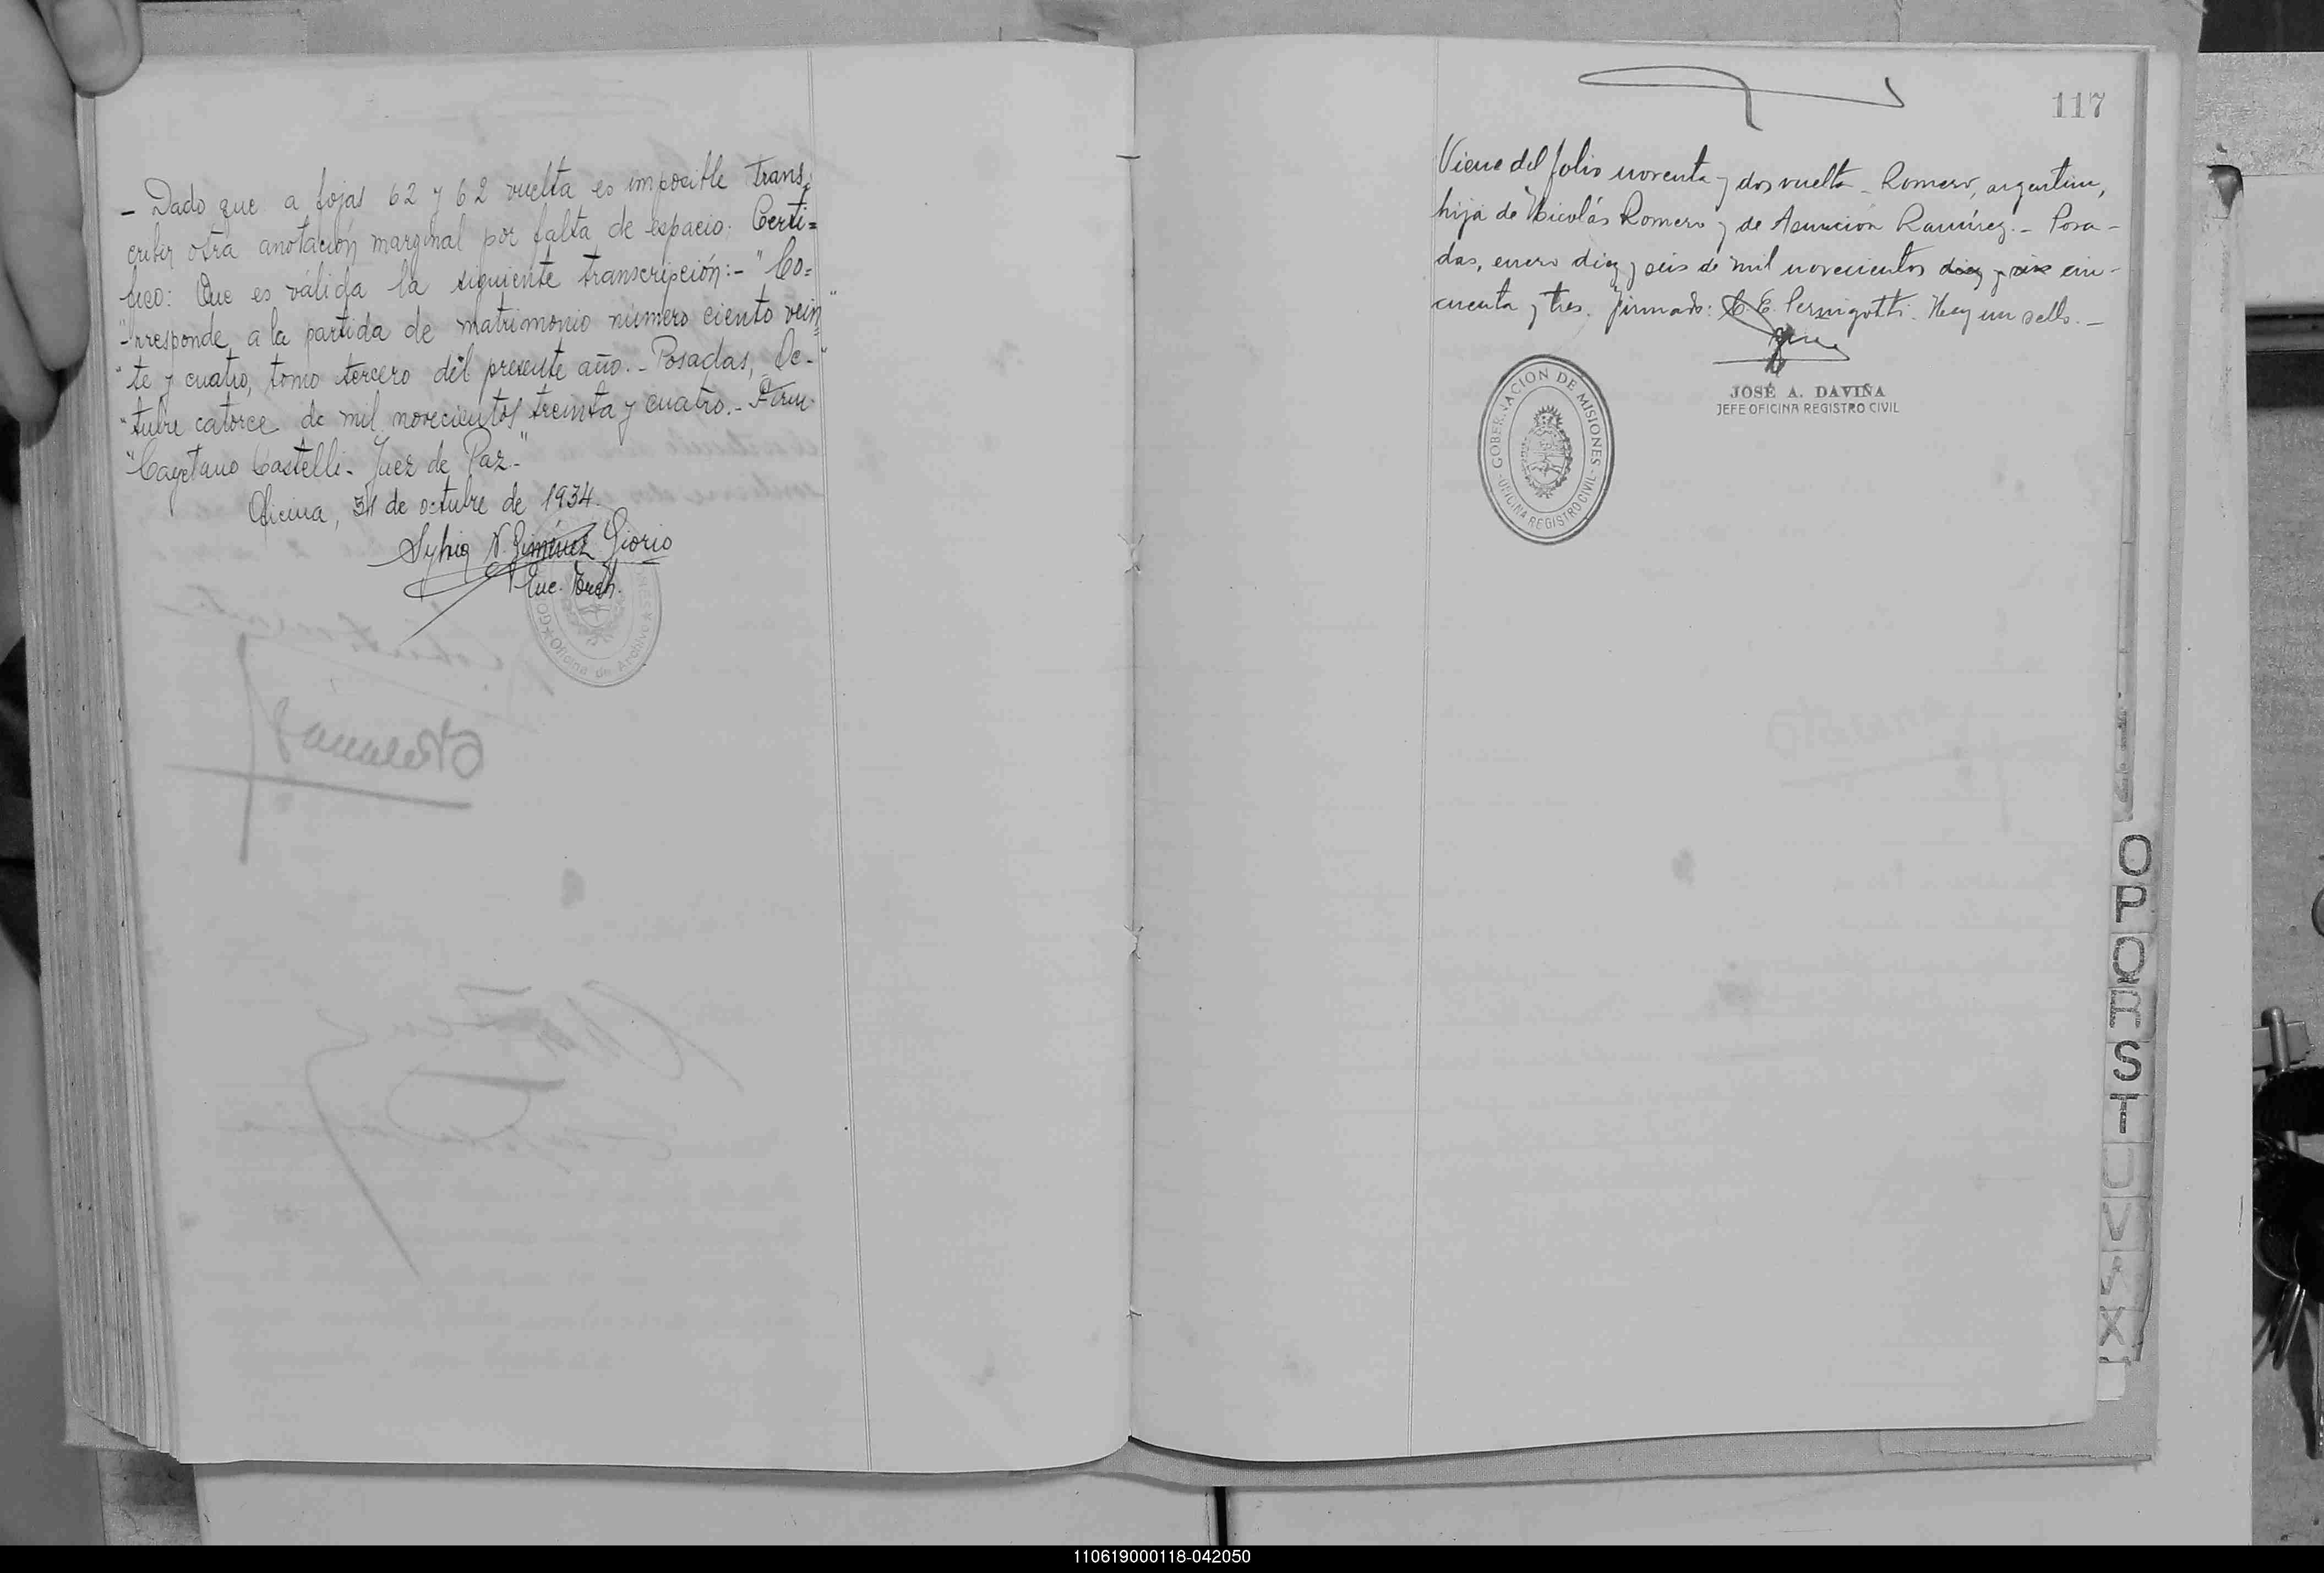 - Dado que a fojas 62 y 62 vuelta es imposible trans,
cribir otra anotación marginal por falta de espacio: Certi=
fico: Que es válida la siguiente transcripción:- "Co=
"rresponde a la partida de matrimonio número ciento vein"
"te y cuatro, tomo tercero del presente año.- Posadas, Oc-"
"tubre catorce de mil novecientos treinta y cuatro.- Firm
"Cayetano Castelli- Juez de Paz-"
Oficina, 31 de octubre de 1934.
Sylvia N. Giménez Giorio
Enc. Arch.
Oficina de Archivo
117
Viene del folio noventa y dos vuelta - Romero, argentina,
hija de Nicolás Romero y de Asunción Ramírez.- Posa-
das, enero diez y seis de mil novecientos diez y seis cin-
cuenta y tres. firmado: C. E. Pernigotti. Hay un sello.-
JOSÉ A. DAVIÑA
JEFE OFICINA REGISTRO CIVIL
GOBERNACION DE MISIONES
OFICINA REGISTRO CIVIL
O
P
Q
R
S
T
U
V
X
110619000118-042050